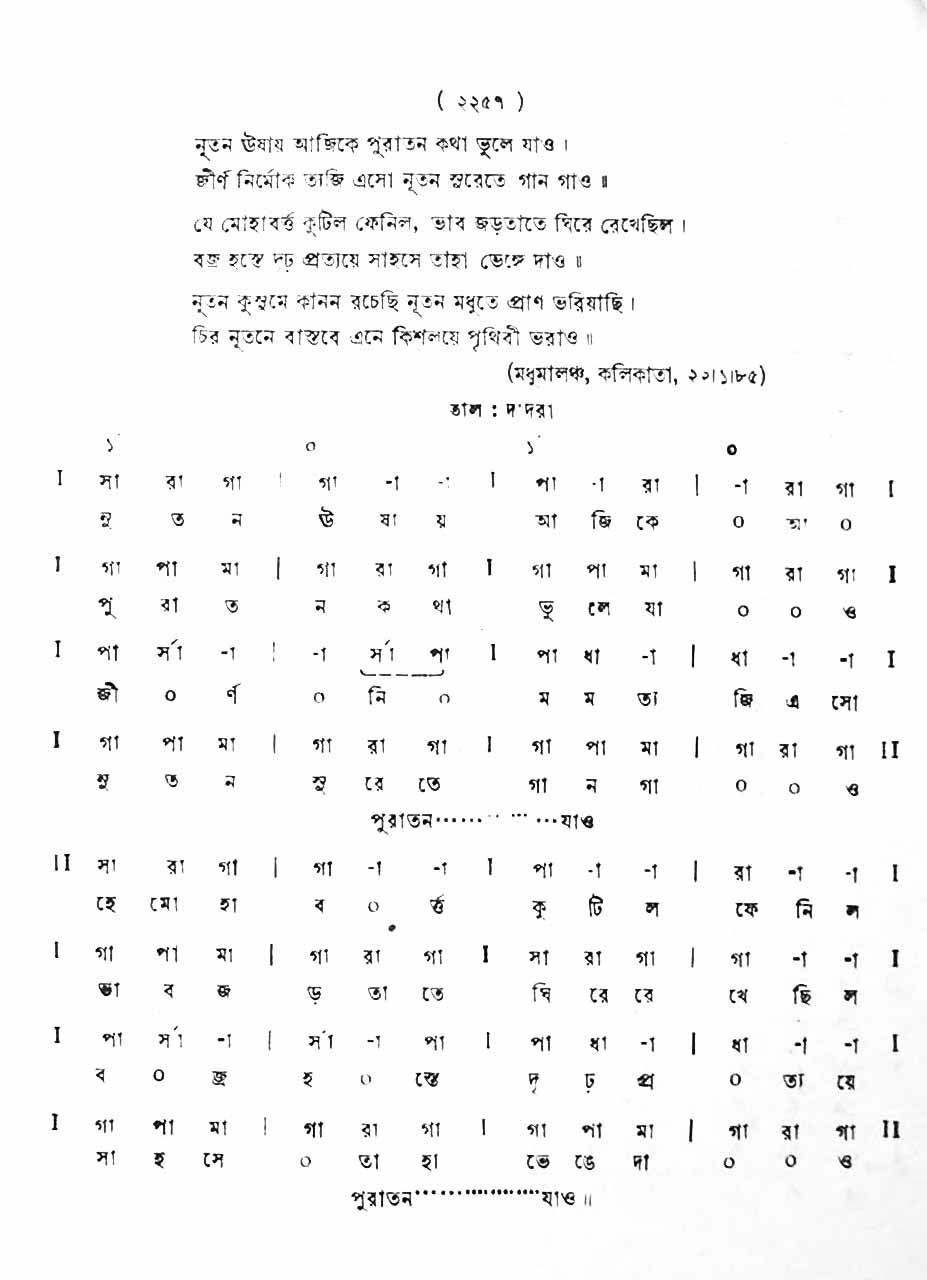 ( ২২৫৭ )
নূতন ঊষায় আজিকে পুরাতন কথা ভুলে যাও ।
জীর্ণ নির্মোক ত্যজি এসো নূতন সুরেতে গান গাও ॥
যে মোহাবর্ত্ত কুটিল ফেনিল, ভাব জড়তাতে ঘিরে রেখেছিল ।
বজ্র হস্তে দৃঢ় প্রত্যয়ে সাহসে তাহা ভেঙ্গে দাও ॥
নূতন কুসুমে কানন রচেছি নূতন মধুতে প্রাণ ভরিয়াছি ।
চির নূতনে বাস্তবে এনে কিশলয়ে পৃথিবী ভরাও ॥
(মধুমালঞ্চ, কলিকাতা, ২০।১।৮৫)
তাল : দাদরা
১´ ০ ১´ ০
I সা রা গা | গা -া -া I পা -া রা | -া রা গা I
নু ত ন ঊ ষা য় আ জি কে ০ আ ০
I গা পা মা | গা রা গা I গা পা মা | গা রা গা I
পু রা ত ন ক থা ভু লে যা ০ ০ ও
I পা র্সা -া | -া র্সা পা I পা ধা -া | ধা -া -া I
জী ০ র্ণ ০ নি ০ ম ম তা জি এ সো
I গা পা মা | গা রা গা I গা পা মা | গা রা গা II
নু ত ন সু রে তে গা ন গা ০ ০ ও
পুরাতন············যাও
II সা রা গা | গা -া -া I পা -া -া | রা -া -া I
হে মো হা ব ০ র্ত্ত কু টি ল ফে নি ল
I গা পা মা | গা রা গা I সা রা গা | গা -া -া I
ভা ব জ ড় তা তে ঘি রে রে খে ছি ল
I পা র্সা -া | র্সা -া পা I পা ধা -া | ধা -া -া I
ব ০ জ্র হ ০ স্তে দৃ ঢ় প্র ০ ত্য য়ে
I গা পা মা | গা রা গা I গা পা মা | গা রা গা II
সা হ সে ০ তা হা ভে ঙে দা ০ ০ ও
পুরাতন··················যাও ॥